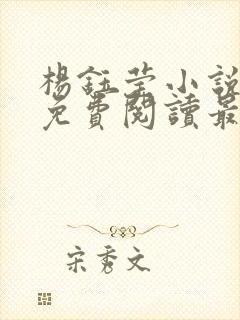 楊鈺莹小說
免費閱讀最
宋秀文